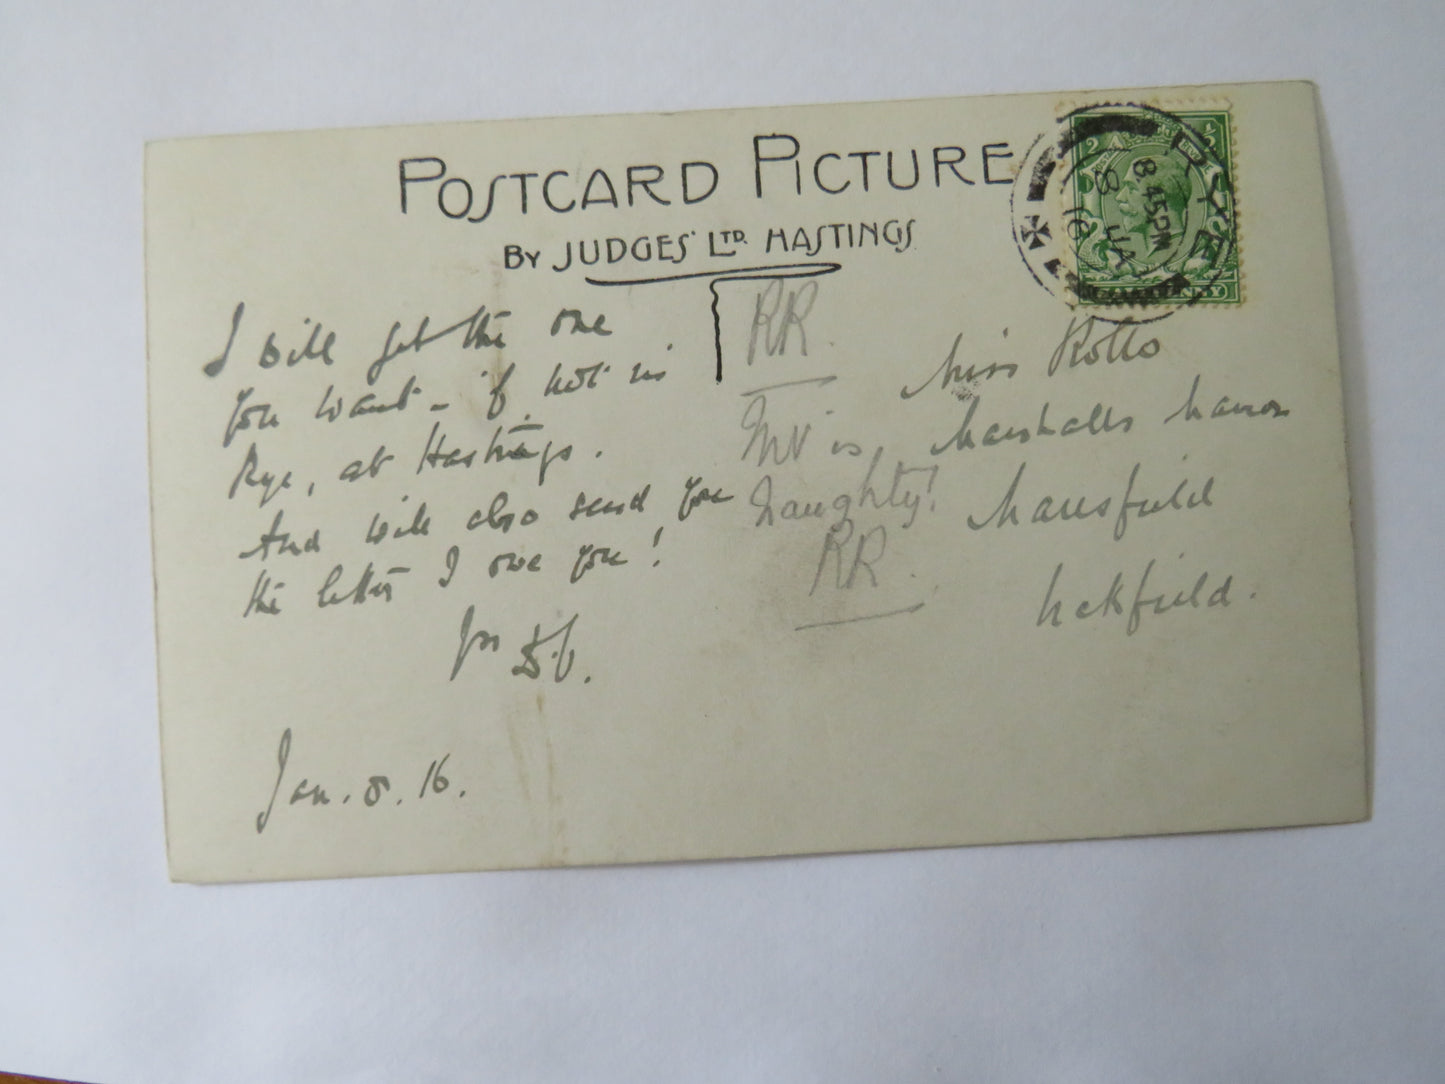 POSTCARD PICTURE
BY JUDGES' LTD. HASTINGS
RYE
8.45PM
8 JA
16
I will get the one
you want – if not in
Rye, at Hastings.
And will also send you
the letter I owe you!
Jan. 8. 16.
RR.
is
Naughty!
RR.
Miss Rollo
Marshalls Manor
Maresfield
Uckfield.